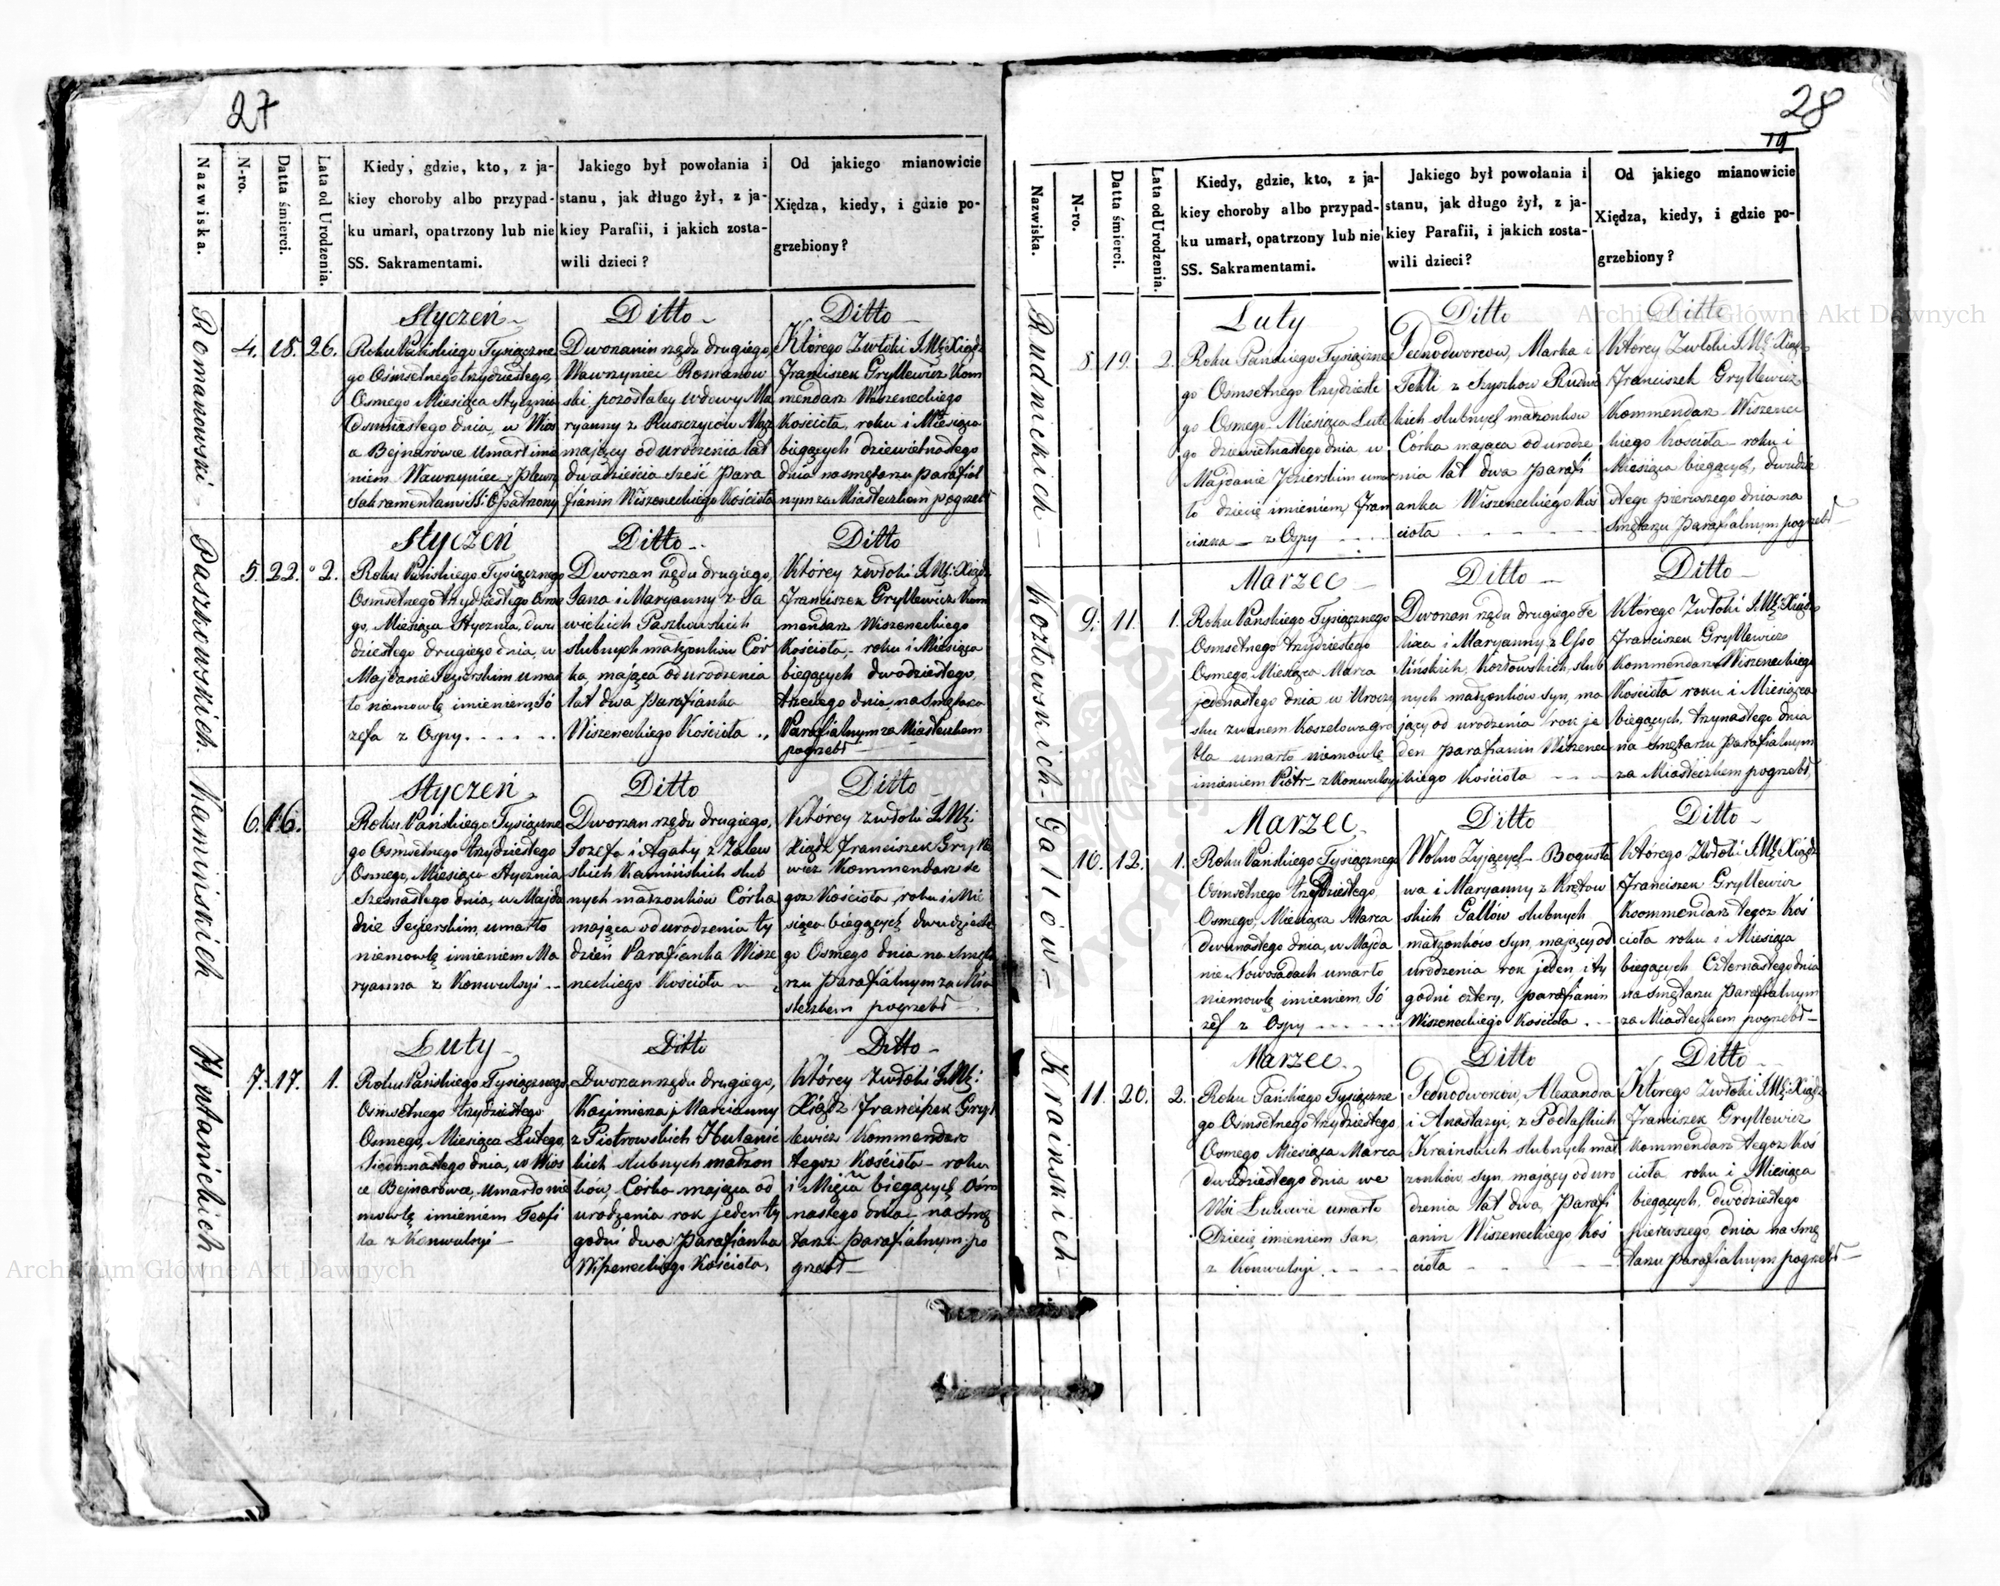 27
Nazwiska.
N-ro.
Datta śmierci.
Lata od Urodzenia.
Kiedy, gdzie, kto, z ja-
kiey choroby albo przypad-
ku umarł, opatrzony lub nie
SS. Sakramentami.
Jakiego był powołania i
stanu, jak długo żył, z ja-
kiey Parafii, i jakich zosta-
wili dzieci?
Od jakiego mianowicie
Xiędza, kiedy, i gdzie po-
grzebiony?
Romanowski
4. 18. 26.
Styczeń
Roku Pańskiego Tysiączne
go Ośmsetnego trzydziestego
Osmego Miesiąca Stycznia
Osmnastego dnia, w Wios
ce Bejnarowce Umarł imie
niem Wawrzyniec z Pleury
Sakramentami SS: Opatrzony
Ditto
Dworzanin rzędu drugiego,
Wawrzyniec Romanow
ski pozostałey wdowy Ma
ryanny z Ruszczyców Mąż
mający od urodzenia lat
dwadzieścia sześć Para
fianin Wiszeneckiego Kościoła
Ditto
Którego Zwłoki J.W: Xiądz
Franciszek Gryllewicz Kom
mendarz Wiszeneckiego
Kościoła, roku i Miesiąca
biegących dziewietnastego
dnia na smętarzu parafial
nym za Miasteczkem pogrzebł
Paszkowskich
5. 22. 2.
Styczeń
Roku Pańskiego Tysiącznego
Osmsetnego trzydziestego Osme
go, Miesiąca Stycznia, dwu
dziestego drugiego dnia, w
Majdanie Jezierskim umar
ło niemowlę imieniem Jó
zefa z Ospy
Ditto
Dworzan rzędu drugiego,
Jana i Maryanny z Sa
wickich Paszkowskich
slubnych małżonków Cór
ka, mająca od urodzenia
lat dwa Parafianka
Wiszeneckiego Kościoła
Ditto
Którey zwłoki J.W: Xiądz
Franciszek Gryllewicz Kom
mendarz Wiszeneckiego
Kościoła, roku i Miesiąca
biegących dwodziestego
trzeciego dnia, na Smętarzu
Parafialnym za Miasteczkem
pogrzebł
Kamińskich
6. 16.
Styczeń
Roku Pańskiego Tysiączne
go Osmsetnego trzydziestego
Osmego, Miesiąca Stycznia
Szesnastego dnia, w Majda
nie Jezierskim, umarło
niemowlę imieniem Ma
ryanna z Konwulsyi
Ditto
Dworzan rzędu drugiego,
Jozefa i Agaty z Zalew
skich Kamińskich slub
nych małżonków Córka
mająca od urodzenia ty
dzień Parafianka Wisze
neckiego Kościoła
Ditto
Którey zwłoki J.W:
Xiądz Franciszek Grylle
wicz Kommendarz te
goz Kościoła, roku i Mie
siąca biegących, dwudzieste
go Osmego dnia na Smęta
rzu parafialnym za Mia
steczkem pogrzebł
Hutanickich
7. 17. 1.
Luty
Roku Pańskiego Tysiącznego
Osmsetnego trzydziestego
Osmego, Miesiąca Lutego,
Siedmnastego dnia, w Wios
ce Bejnarowce, umarło nie
mowlę imieniem Teofi
la z Konwulsyi
Ditto
Dworzan rzędu drugiego,
Kazimierza i Marcianny
z Piotrowskich Hutanic
kich slubnych małżon
ków, Córka mająca od
urodzenia rok jeden ty
godni dwa Parafianka
Wiszeneckiego Kościoła,
Ditto
Którey Zwłoki J.W:
Xiądz Franciszek Gryl
lewicz Kommendarz
tegoz Kościoła, roku
i biegących Ośm
nastego dnia na Smę
tarzu parafialnym po
grzebł
28
19
Nazwiska.
N-ro.
Datta śmierci.
Lata od Urodzenia.
Kiedy, gdzie, kto, z ja-
kiey choroby albo przypad-
ku umarł, opatrzony lub nie
SS. Sakramentami.
Jakiego był powołania i
stanu, jak długo żył, z ja-
kiey Parafii, i jakich zosta-
wili dzieci?
Od jakiego mianowicie
Xiędza, kiedy, i gdzie po-
grzebiony?
Rudnickich
8. 19. 2.
Luty
Roku Pańskiego Tysiączne
go Osmsetnego trzydzieste
go Osmego Miesiąca Lute
go dziewietnastego dnia w
Majdanie Jezierskim umar
ło dziecię imieniem Fran
ciszka z Ospy
Ditto
Jednodworców, Marka i
Tekli z Szyszków Rudnic
kich slubnych małżonków
Córka mająca od urodze
nia lat dwa Parafi
anka Wiszeneckiego Koś
cioła
Ditto
Którey Zwłoki J.W: Xiądz
Franciszek Gryllewicz
Kommendarz Wiszenec
kiego Kościoła roku i
Miesiąca biegących, dwudzie
stego pierwszego dnia na
Smętarzu Parafialnym pogrzebł
Kozłowskich
9. 11. 1.
Marzec
Roku Pańskiego Tysiącznego
Osmsetnego trzydziestego
Osmego, Miesiąca Marca
jedenastego dnia w Uroczy
sku zwanem Koszelowa gro
bla umarło niemowlę
imieniem Piotr z Konwulsyi
Ditto
Dworzan rzędu drugiego Fe
lixa i Maryanny z
lińskich, Kozłowskich, slub
nych małżonków Syn, ma
jący od urodzenia rok je
den parafianin Wiszenec
kiego Kościoła
Ditto
Którego Zwłoki J.W: Xiądz
Franciszek Gryllewicz
Kommendarz Wiszeneckiego
Kościoła roku i Miesiąca
biegących, trzynastego dnia
na Smętarzu Parafialnym
za Miasteczkem pogrzebł,
Gallow
10. 12. 1.
Marzec
Roku Pańskiego Tysiącznego
Osmsetnego trzydziestego
Osmego, Miesiąca Marca
dwunastego dnia, w Majda
nie Nowosadach umarło
niemowlę imieniem Jó
zef z Ospy
Ditto
Wolno Zyjących Bogusła
wa i Maryanny z Krętow
skich Gallów slubnych
małżonków Syn, mający od
urodzenia rok jeden i ty
godni cztery, parafianin
Wiszeneckiego Kościoła
Ditto
Którego Zwłoki J.W: Xiądz
Franciszek Gryllewicz
Koommendarz tegoz Koś
cioła roku i Miesiąca
biegących Czternastego dnia
na Smętarzu Parafialnym
za Miasteczkem pogrzebł
Krainskich
11. 20. 2.
Marzec
Roku Pańskiego Tysiączne
go Osmsetnego trzydziestego
Osmego Miesiąca Marca
dwudziestego dnia we
Wsi umarło
Dziecię imieniem Jan
z Konwulsyi
Ditto
Jednodworców, Alexandra
i Anastazyi, z Podlaskich
Krainskich slubnych mał
żonków syn, mający od uro
dzenia lat dwa, Parafi
anin Wiszeneckiego Koś
cioła
Ditto
Którego Zwłoki J.W: Xiądz
Franciszek Gryllewicz
Kommendarz tegoz Koś
cioła roku i Miesiąca
biegących, dwodziestego
pierwszego, dnia na Smę
tarzu parafialnym pogrzebł
Archiwum Główne Akt Dawnych
Archiwum Główne Akt Dawnych